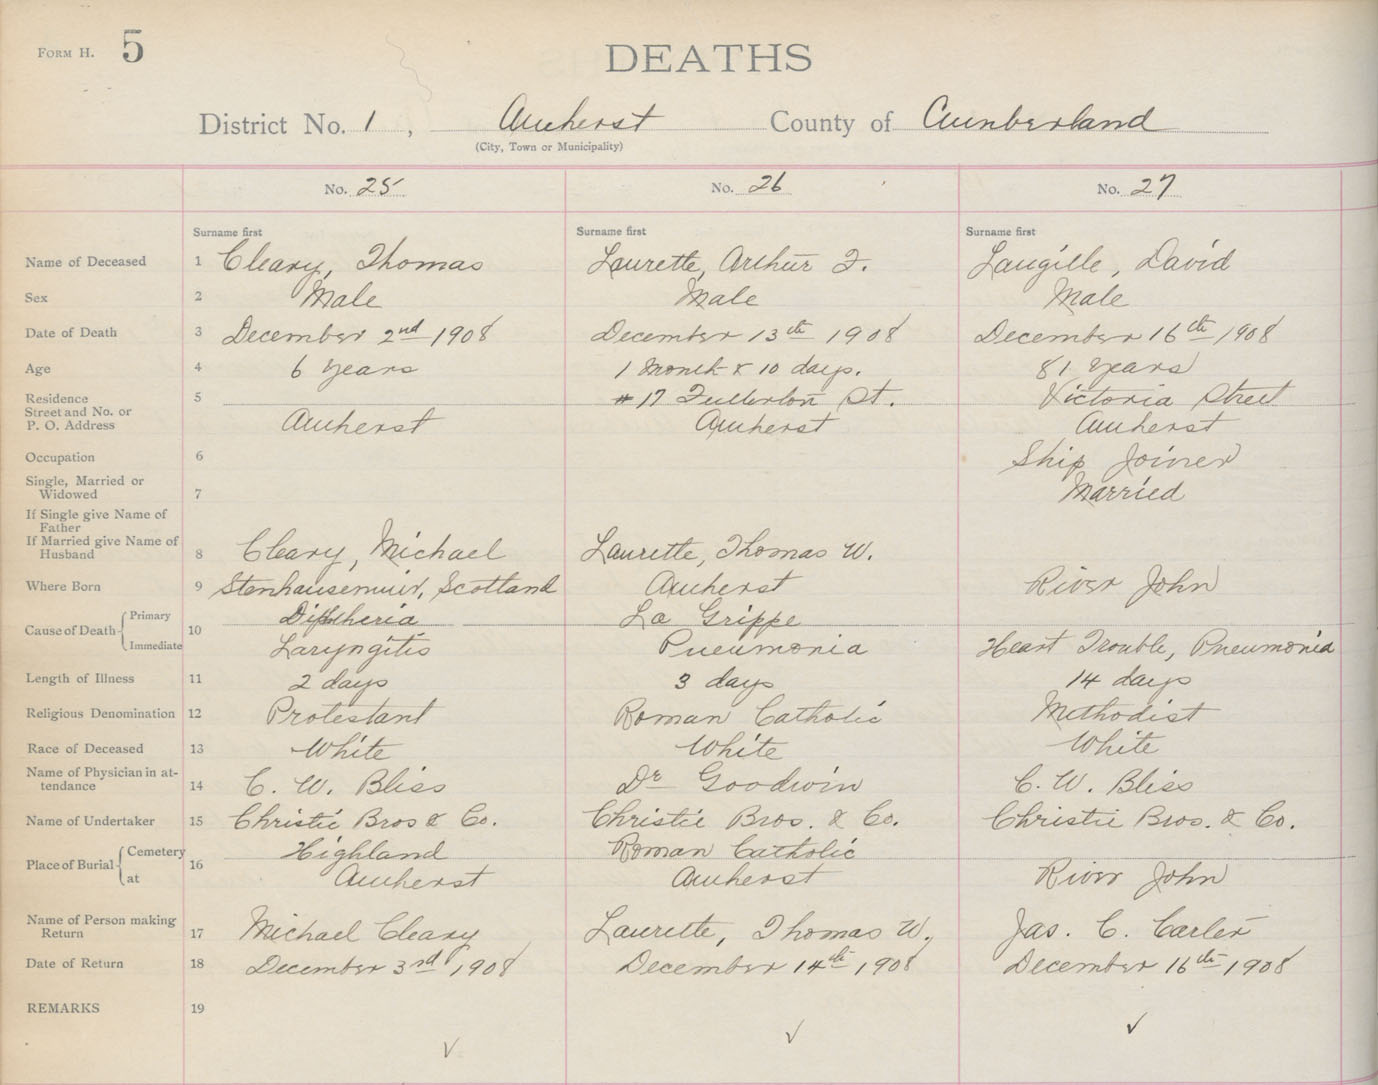 FORM H. 5
DEATHS
District No. 1, Amherst County of Cumberland
(City, Town or Municipality)
No. 25 No. 26 No. 27
Surname first Surname first Surname first
Name of Deceased 1 Cleary, Thomas Laurette, Arthur F. Langille, David
Sex 2 Male Male Male
Date of Death 3 December 2nd 1908 December 13th 1908 December 16th 1908
Age 4 6 years 1 Month & 10 days. 81 years
Residence 5 #17 Fullerton St. Victoria Street
Street and No. or
P. O. Address Amherst Amherst Amherst
Occupation 6 Ship Joiner
Single, Married or
Widowed 7 Married
If Single give Name of
Father
If Married give Name of
Husband 8 Cleary, Michael Laurette, Thomas W.
Where Born 9 Stenhausemuir, Scotland Amherst River John
Cause of Death Primary 10 Diphtheria La Grippe
Immediate Laryngitis Pneumonia Heart Trouble, Pneumonia
Length of Illness 11 2 days 3 days 14 days
Religious Denomination 12 Protestant Roman Catholic Methodist
Race of Deceased 13 White White White
Name of Physician in at-
tendance 14 C. W. Bliss Dr Goodwin C. W. Bliss
Name of Undertaker 15 Christie Bros & Co. Christie Bros. & Co. Christie Bros. & Co.
Place of Burial Cemetery 16 Highland Roman Catholic
at Amherst Amherst River John
Name of Person making
Return 17 Michael Cleary Laurette, Thomas W. Jas. C. Carter
Date of Return 18 December 3rd, 1908 December 14th 1908 December 16th 1908
REMARKS 19